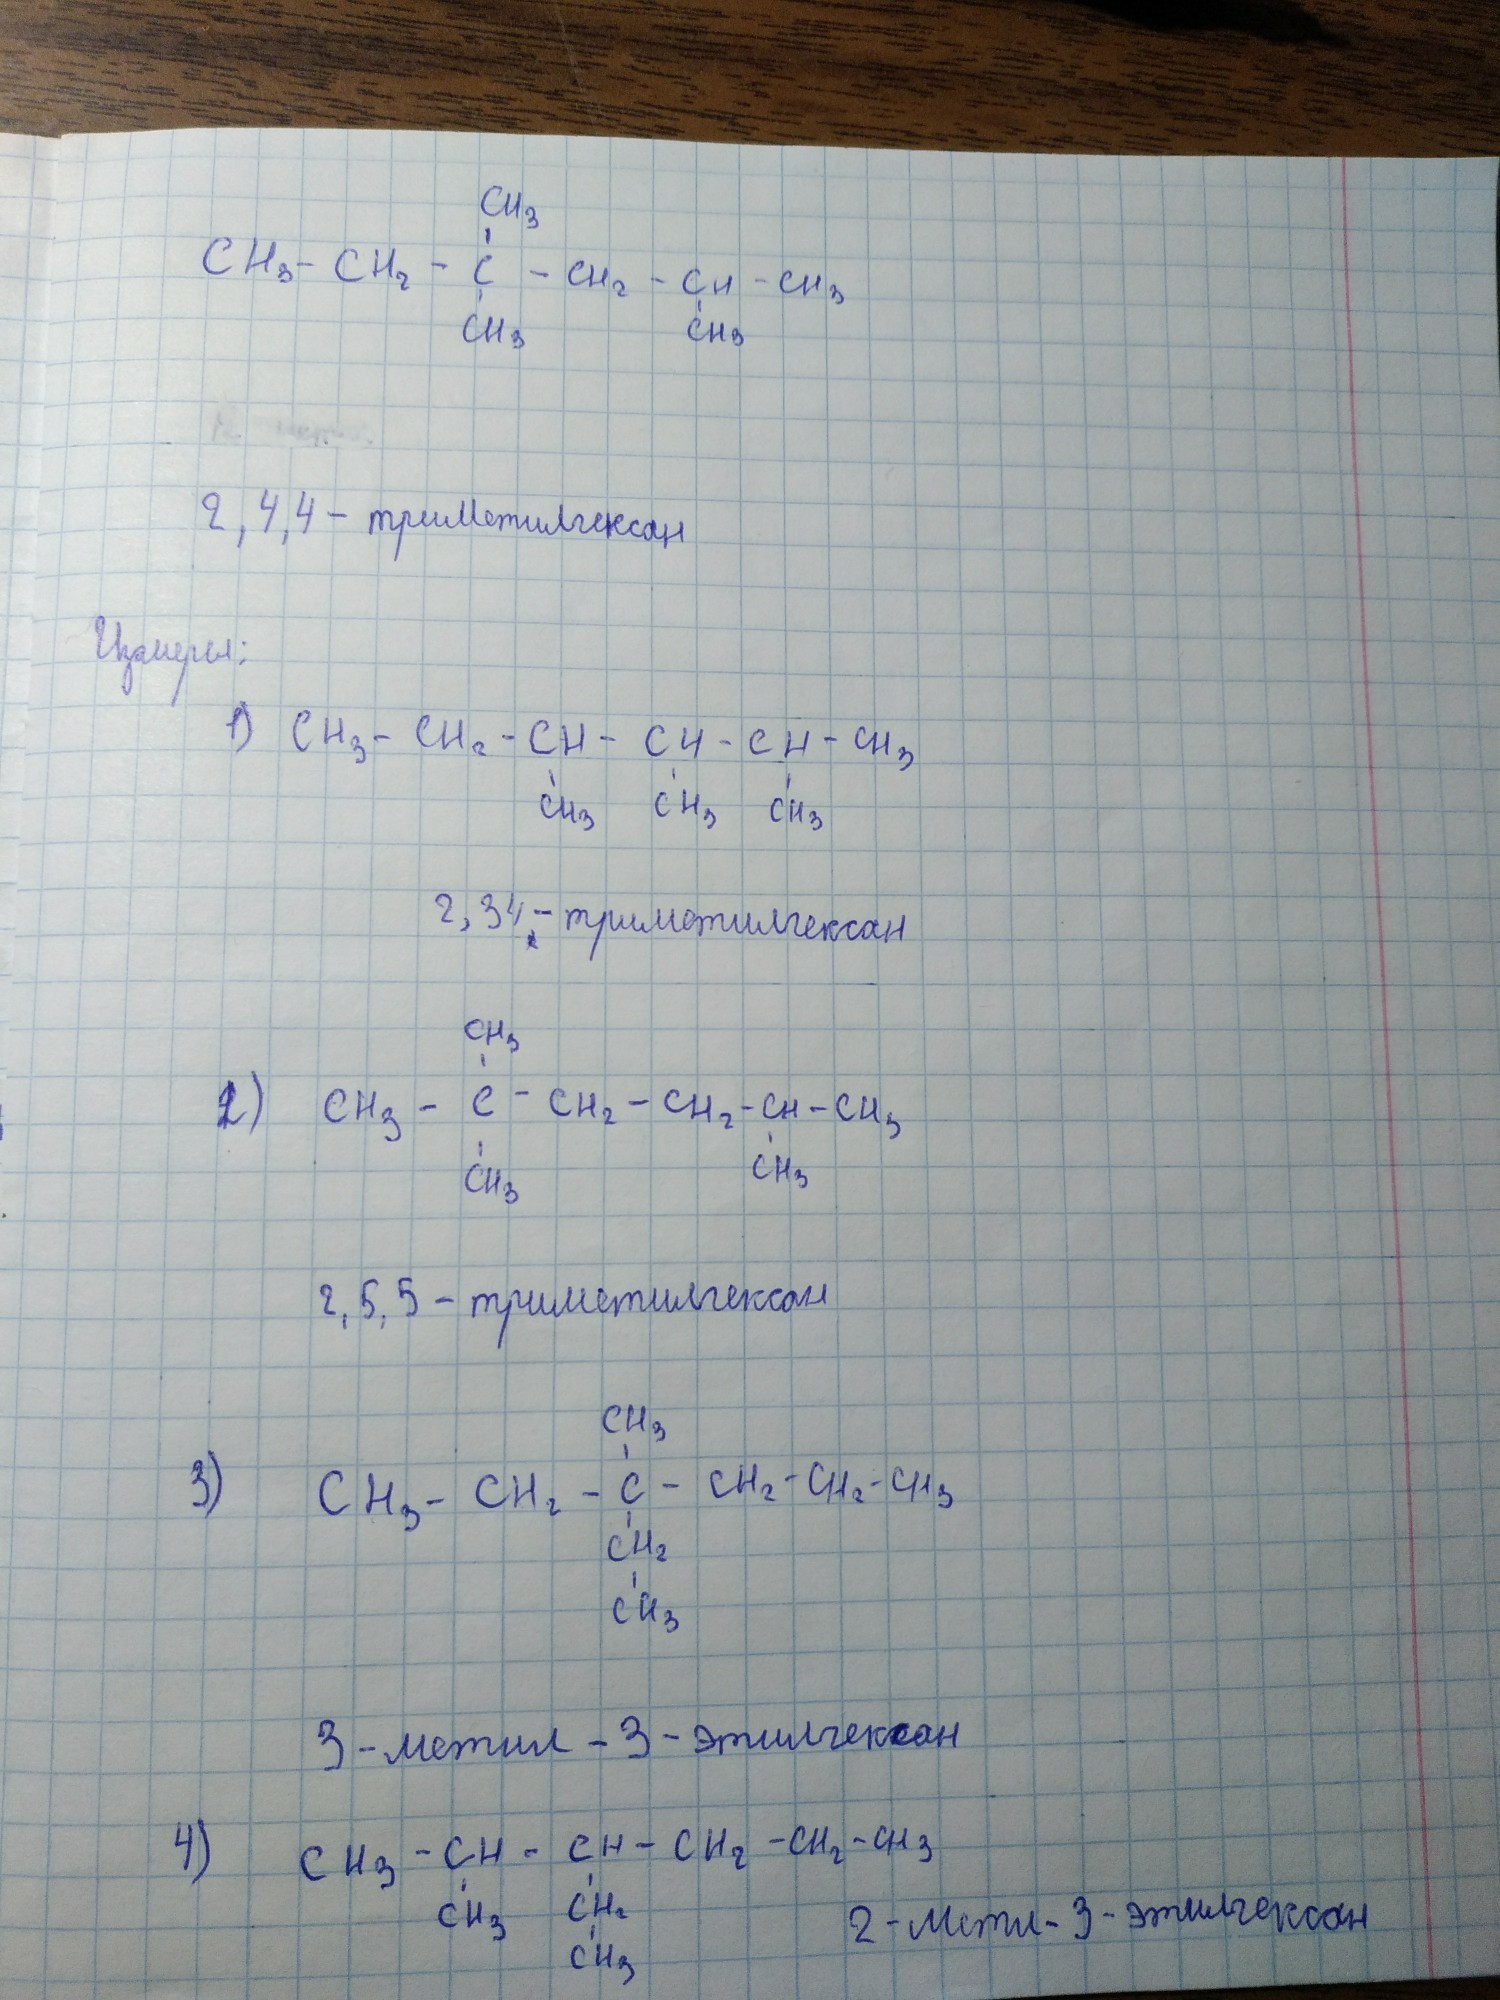 CH₃
CH₃ - CH₂ - C - CH₂ - CH - CH₃
CH₃ CH₃
2,4,4 - триметилгексан
Изомеры:
1) CH₃ - CH₂ - CH - CH - CH - CH₃
CH₃ CH₃ CH₃
2,34 - триметилгексан
CH₃
2) CH₃ - C - CH₂ - CH₂ - CH - CH₃
CH₃ CH₃
2,5,5 - триметилгексан
CH₃
3) CH₃ - CH₂ - C - CH₂ - CH₂ - CH₃
CH₂
CH₃
3 - метил - 3 - этилгексан
4) CH₃ - CH - CH - CH₂ - CH₂ - CH₃
CH₃ CH₂
CH₃
2 - метил - 3 - этилгексан